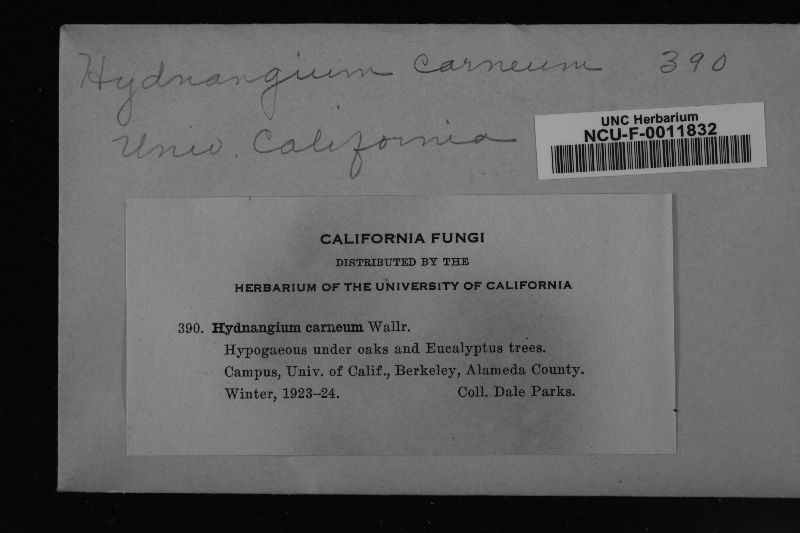 Hydnangium carneum 390
Univ. California
UNC Herbarium
NCU-F-0011832
CALIFORNIA FUNGI
DISTRIBUTED BY THE
HERBARIUM OF THE UNIVERSITY OF CALIFORNIA
390. Hydnangium carneum Wallr.
Hypogaeous under oaks and Eucalyptus trees.
Campus, Univ. of Calif., Berkeley, Alameda County.
Winter, 1923–24. Coll. Dale Parks.